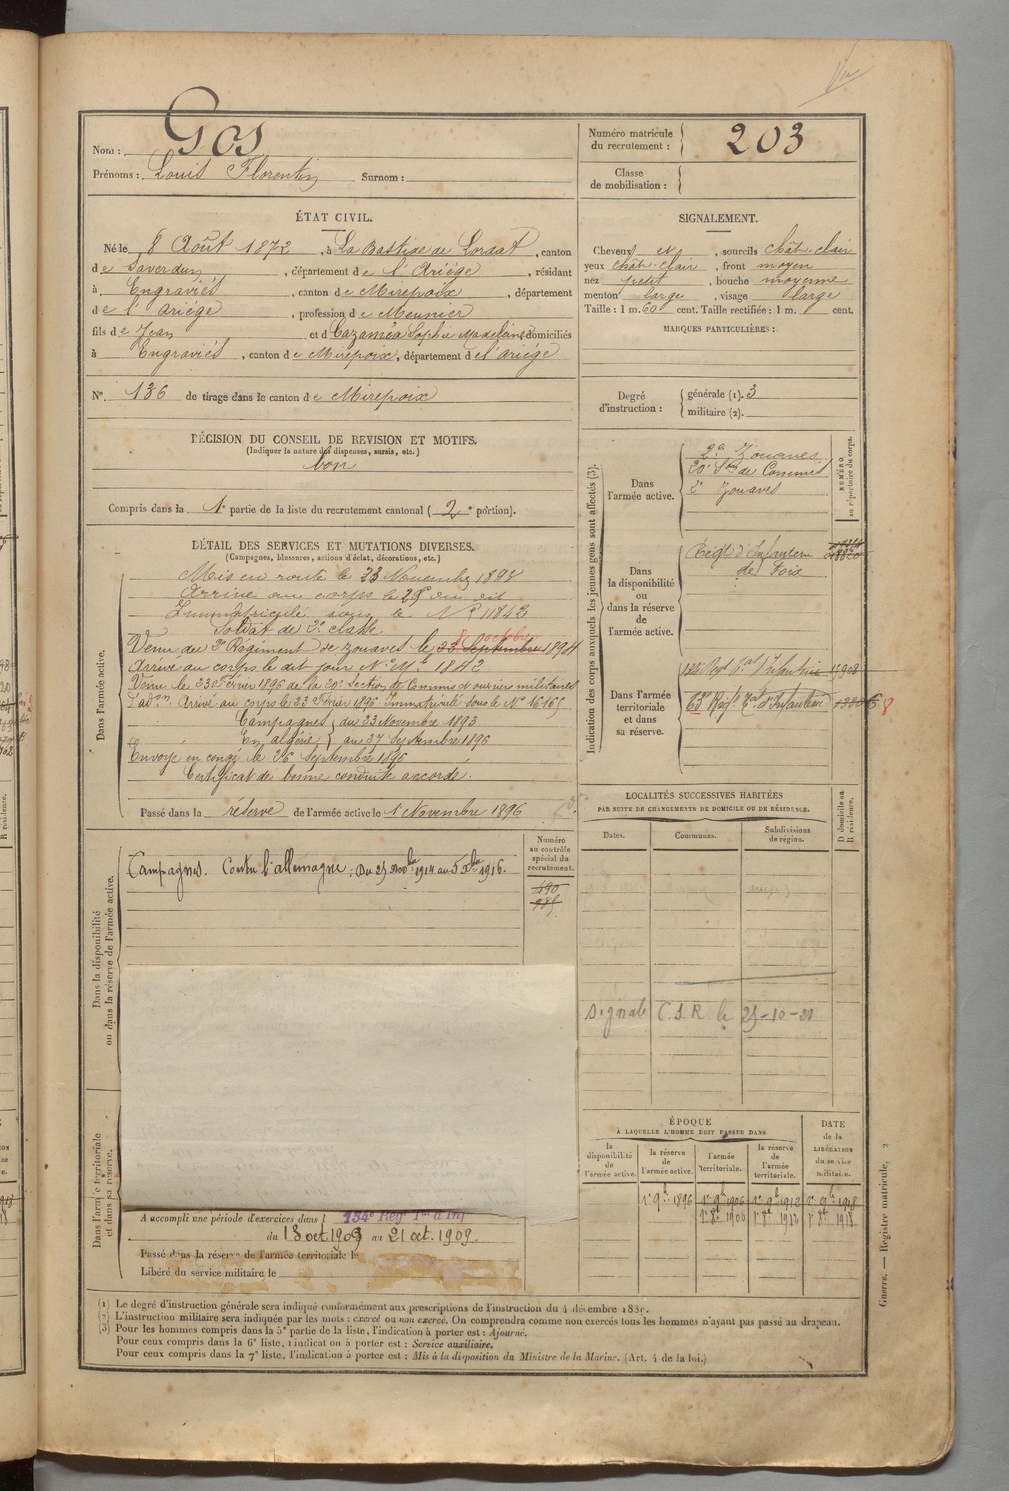 Nom : Gos
Prénoms : Louis Florentin Surnom :
Numéro matricule du recrutement : 203
Classe de mobilisation :
ÉTAT CIVIL.
Né le 8 Août 1872, à La Bastide de Lordat, canton
de Saverdun, département de l'Ariège, résidant
à Engraviès, canton de Mirepoix, département
de l'ariège, profession de Meunier
fils de Jean et d Cazaméa Sophie Madeleine domiciliés
à Engraviès, canton de Mirepoix, département de l'ariège
N° 136 de tirage dans le canton de Mirepoix
DÉCISION DU CONSEIL DE REVISION ET MOTIFS.
(Indiquer la nature des dispenses, sursis, etc.)
bon
Compris dans la 1e partie de la liste du recrutement cantonal (2e portion).
SIGNALEMENT.
Cheveux et, sourcils chât. clair
yeux chât. clair, front moyen
nez petit, bouche moyenne
menton large, visage large
Taille : 1 m. 60 cent. Taille rectifiée : 1 m. cent.
MARQUES PARTICULIÈRES :
Degré d'instruction :
générale (1). 3
militaire (2).
DÉTAIL DES SERVICES ET MUTATIONS DIVERSES.
(Campagnes, blessures, actions d'éclat, décorations, etc.)
Dans l'armée active.
Mis en route le 23 Novembre 1893
Arrivé au corps le 25 du dit
Immatriculé sous le N° 11842
Soldat de 2e classe
Venu du 2e Régiment de zouaves le 23 Septembre 1894
octobre
Arrivé au corps le dit jour N° Mle 1842
Venu le 23 Février 1896 de la 20e Section de Commis et ouvriers militaires
d'adon Arrivé au corps le 23 Février 1896 Immatriculé sous le N° 16.165
Campagnes du 23 Novembre 1893
En algérie au 27 Septembre 1896
Envoyé en congé le 26 Septembre 1896
Certificat de bonne conduite accordé.
Passé dans la réserve de l'armée active le 1er Novembre 1896
Indication des corps auxquels les jeunes gens sont affectés (3).
NUMÉRO au répertoire du corps.
Dans l'armée active.
2e Zouaves
20e Son de Commis
2e Zouaves
Dans la disponibilité ou dans la réserve de l'armée active.
Régt d'Infanterie
de Foix
Dans l'armée territoriale et dans sa réserve.
134 Regt Tal Infanterie 11908
Regt Tal d'Infanterie
8
LOCALITÉS SUCCESSIVES HABITÉES
PAR SUITE DE CHANGEMENTS DE DOMICILE OU DE RÉSIDENCE.
Dates. Communes. Subdivisions de région. D domicile ou R résidence.
signalé C.S.R. le 25-10-21
Dans la disponibilité ou dans la réserve de l'armée active.
Numéro au contrôle spécial du recrutement.
Campagnes. Contre l'allemagne : Du 25 Nov bre 1914 au 5 Xbre 1916.
490
985
ÉPOQUE
À LAQUELLE L'HOMME DOIT PASSER DANS
la disponibilité de l'armée active.
la réserve de l'armée active.
l'armée territoriale.
la réserve de l'armée territoriale.
DATE de la LIBÉRATION du service militaire.
1er 9bre 1896 1er 9bre 1906 1er 9bre 1912 1er 9bre 1918
1er 8bre 1906 1er 8bre 1912 1er 8bre 1918
Dans l'armée territoriale et dans sa réserve.
A accompli une période d'exercices dans l 134e Régt Tal d'Inf
du 13 oct. 1909 au 21 oct. 1909.
Passé dans la réserve de l'armée territoriale le
Libéré du service militaire le
(1) Le degré d'instruction générale sera indiqué conformément aux prescriptions de l'instruction du 4 décembre 1889.
(2) L'instruction militaire sera indiquée par les mots : exercé ou non exercé. On comprendra comme non exercés tous les hommes n'ayant pas passé au drapeau.
(3) Pour les hommes compris dans la 5e partie de la liste, l'indication à porter est : Ajourné.
Pour ceux compris dans la 6e liste, l'indication à porter est : Service auxiliaire.
Pour ceux compris dans la 7e liste, l'indication à porter est : Mis à la disposition du Ministre de la Marine. (Art. 4 de la loi.)
Guerre. — Registre matricule, 2